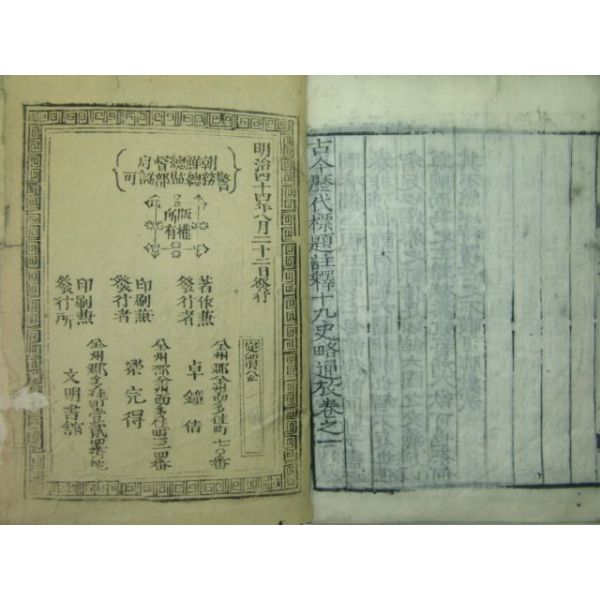 古今歷代標題註釋十九史略通攷卷之一
明治四十四年八月二十二日發行
朝鮮總督府
警務總監部認可
版權
所有
定價金
著作兼
發行者
全州郡全州面多佳町七〇番
卓鐘佶
印刷兼
發行者
全州郡全州面多佳町三二四番
梁完得
印刷兼
發行所
全州郡多佳町壹貳四番地
文明書館